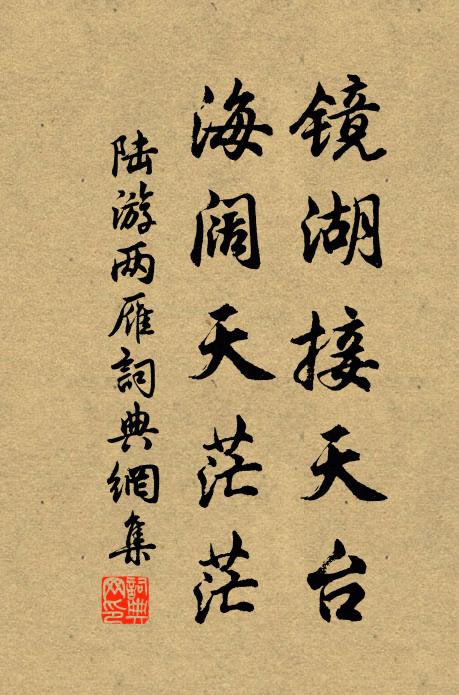 镜湖接天台
海阔天茫茫
陆游两雁詞典網集
詞典网印